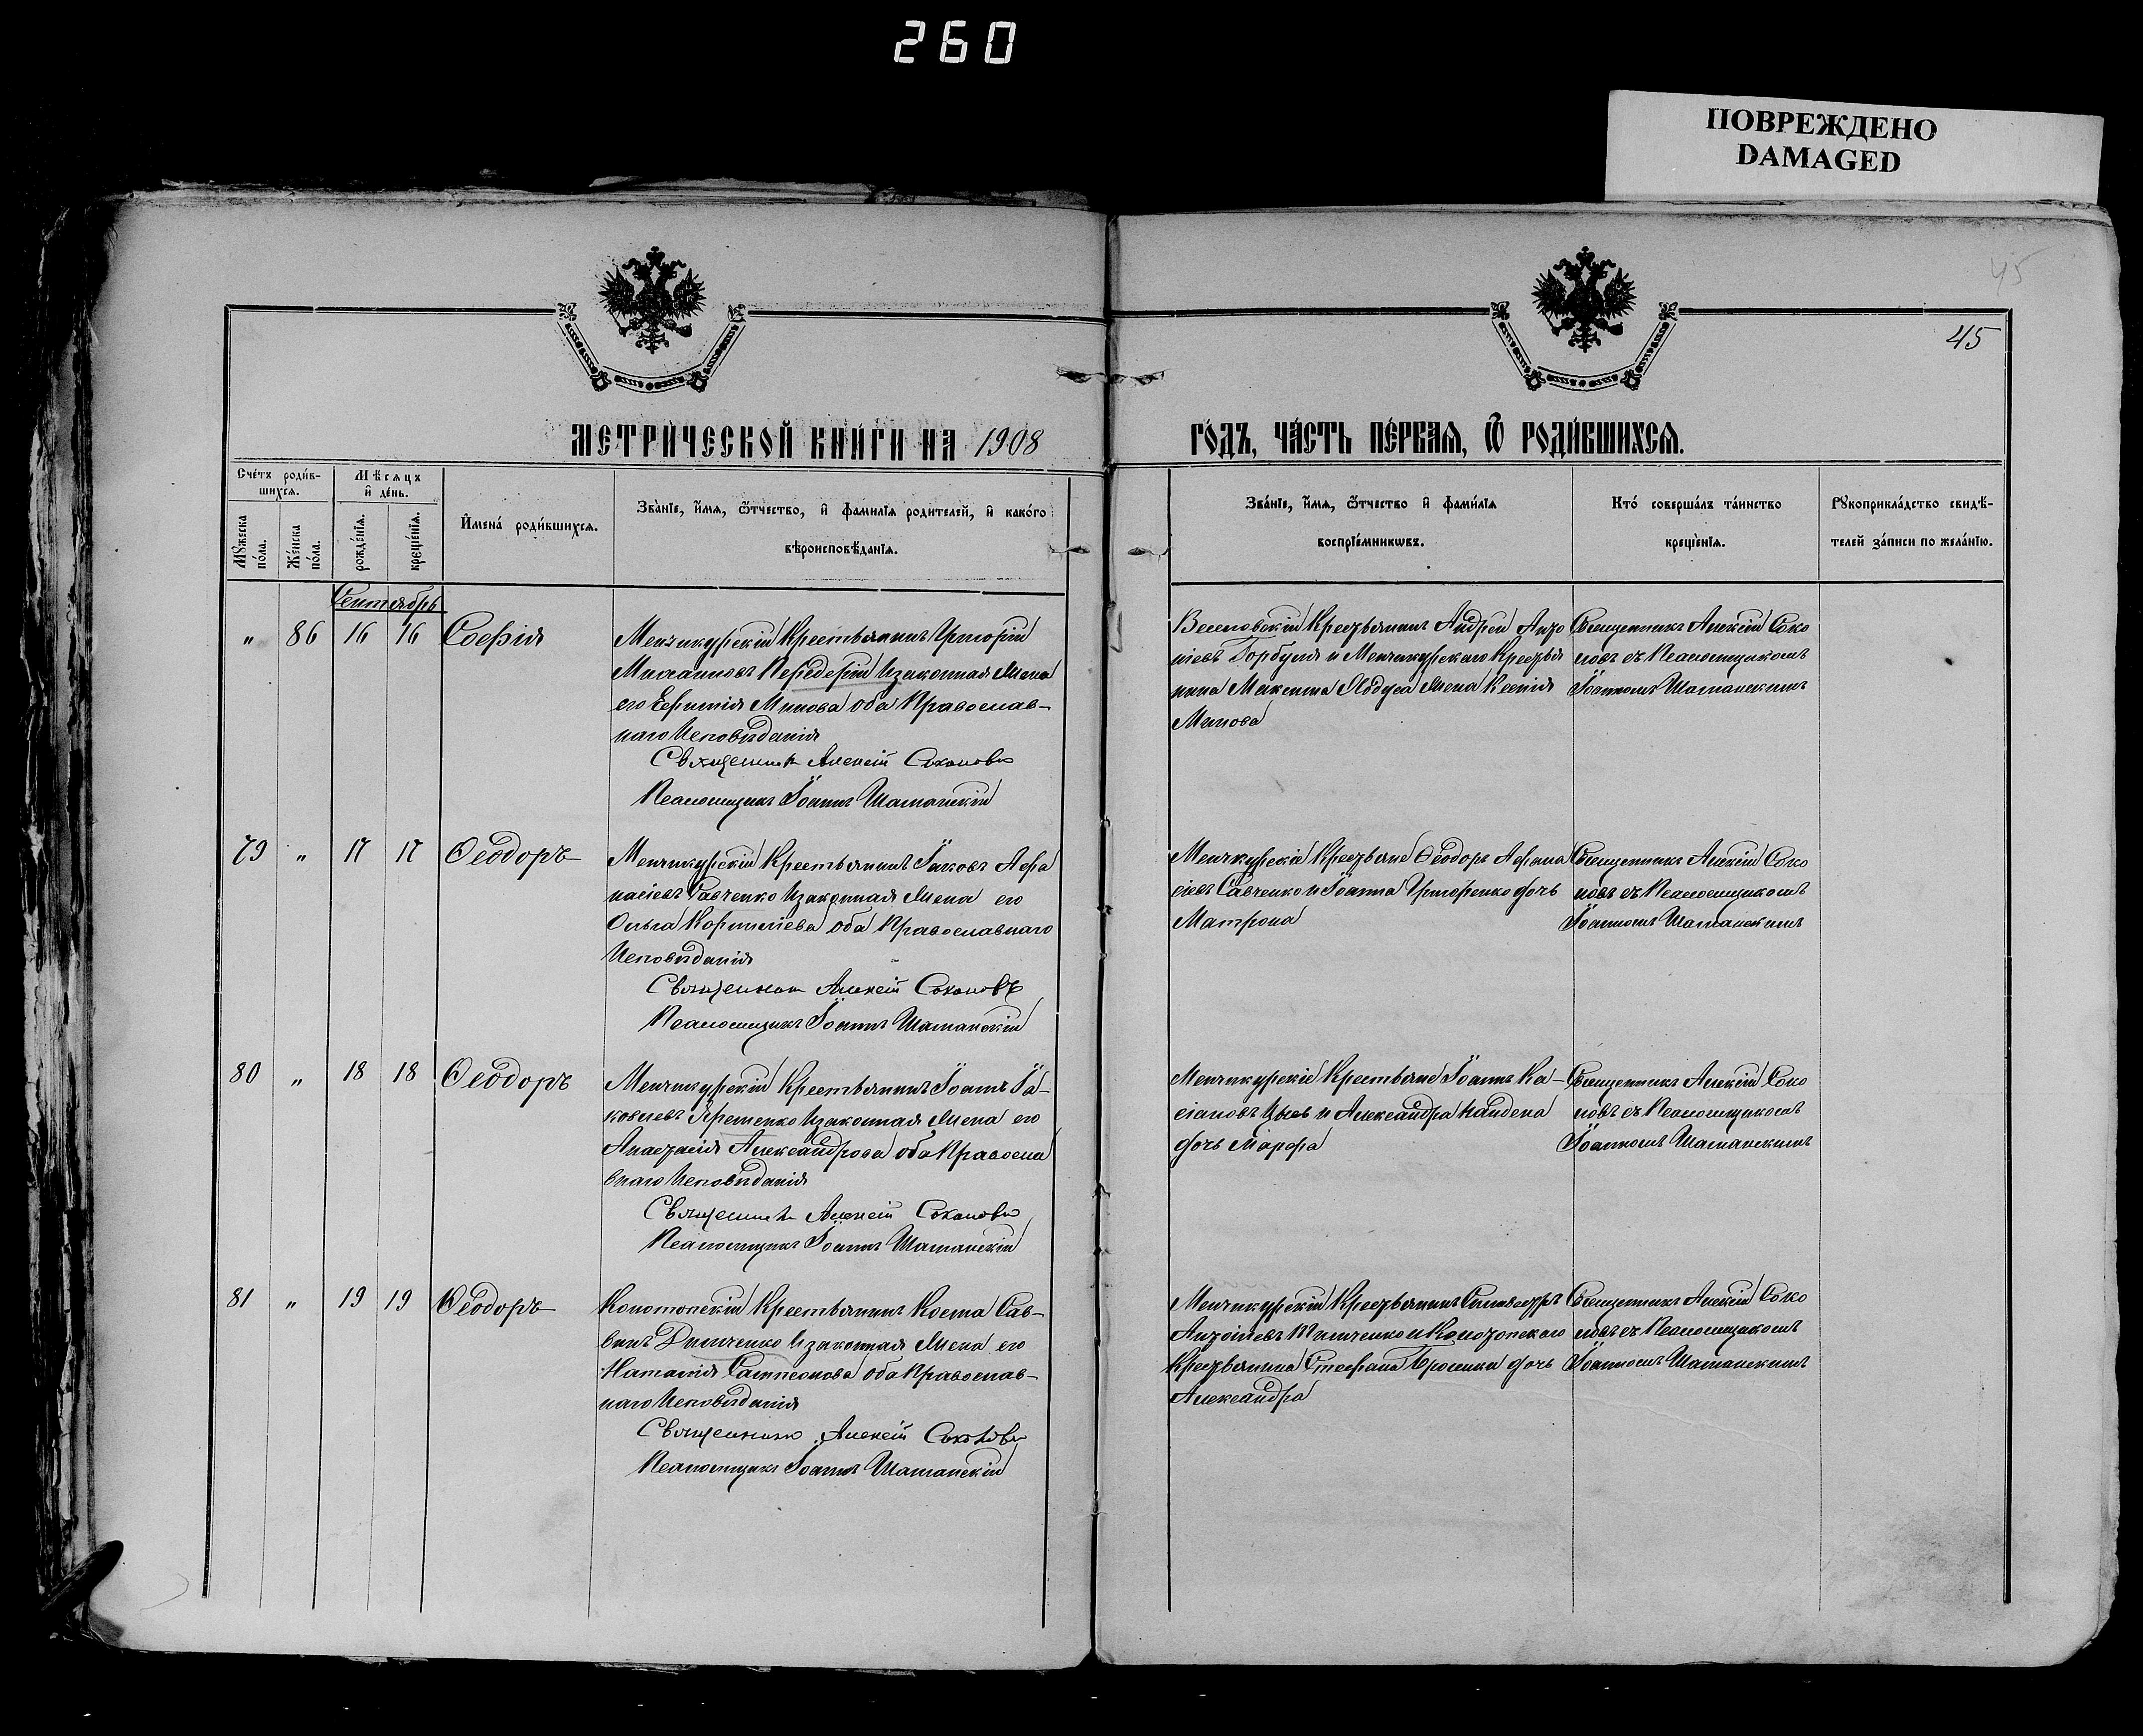 260
ПОВРЕЖДЕНО
DAMAGED
45
45
МЕТРИЧЕСКОЙ КНИГИ НА 1908
ГОДЪ, ЧАСТЬ ПЕРВАЯ, Ѿ РОДИВШИХСЯ.
Счетъ родив-
шихся.
Мѣсяцъ
и день.
Мужеска
пола.
Женска
пола.
рожденїя.
крещенїя.
Имена родившихся.
Званїе, имя, ѿтчество, и фамилїя родителей, и какого
вѣроисповѣданїя.
Званїе, имя, ѿтчество и фамилїя
воспрїемниковъ.
Кто совершалъ таинство
крещенїя.
Рукоприкладство свидѣ-
телей записи по желанїю.
Сентябрь
" 86 16 16 Софія
Менчикурскій Крестьянинъ Григорій
Передерій и законная жена
его Евфимія Минова оба Православ-
наго Исповѣданія
Священникъ Алексій Соколовъ
Псаломщикъ Іоаннъ Шаманскій
Веселовскій Крестьянинъ Андрей Анто
ніевъ Горбуля и Менчикурскаго Крестья
нина Максима жена Ксенія
Минова
Священникъ Алексій Соко
ловъ съ Псаломщикомъ
Іоанномъ Шаманскимъ
79 " 17 17 Ѳеодоръ
Менчикурскій Крестьянинъ Іаковъ Афа
насіевъ Савченко и законная жена его
Ольга Корниліева оба Православнаго
Исповѣданія
Священникъ Алексій Соколовъ
Псаломщикъ Іоаннъ Шаманскій
Менчикурскіе Крестьяне Ѳеодоръ Афана
сіевъ Савченко и Іоанна Григоренко дочь
Матрона
Священникъ Алексій Соко
ловъ съ Псаломщикомъ
Іоанномъ Шаманскимъ
80 " 18 18 Ѳеодоръ
Менчикурскій Крестьянинъ Іоаннъ Іа-
ковлевъ Яременко и законная жена его
Анастасія Александрова оба Правосла
внаго Исповѣданія
Священникъ Алексій Соколовъ
Псаломщикъ Іоаннъ Шаманскій
Менчикурскіе Крестьяне Іоаннъ Ка-
сіановъ и Александра
дочь Марфа
Священникъ Алексій Соко
ловъ съ Псаломщикомъ
Іоанномъ Шаманскимъ
81 " 19 19 Ѳеодоръ
Конотопскій Крестьянинъ Косма Сав-
винъ и законная жена его
Наталія Сампсонова оба Православ-
наго Исповѣданія
Священникъ Алексій Соколовъ
Псаломщикъ Іоаннъ Шаманскій
Менчикурскій Крестьянинъ Сильвестръ
Антоніевъ и Конотопскаго
Крестьянина Стефана дочь
Александра
Священникъ Алексій Соко
ловъ съ Псаломщикомъ
Іоанномъ Шаманскимъ